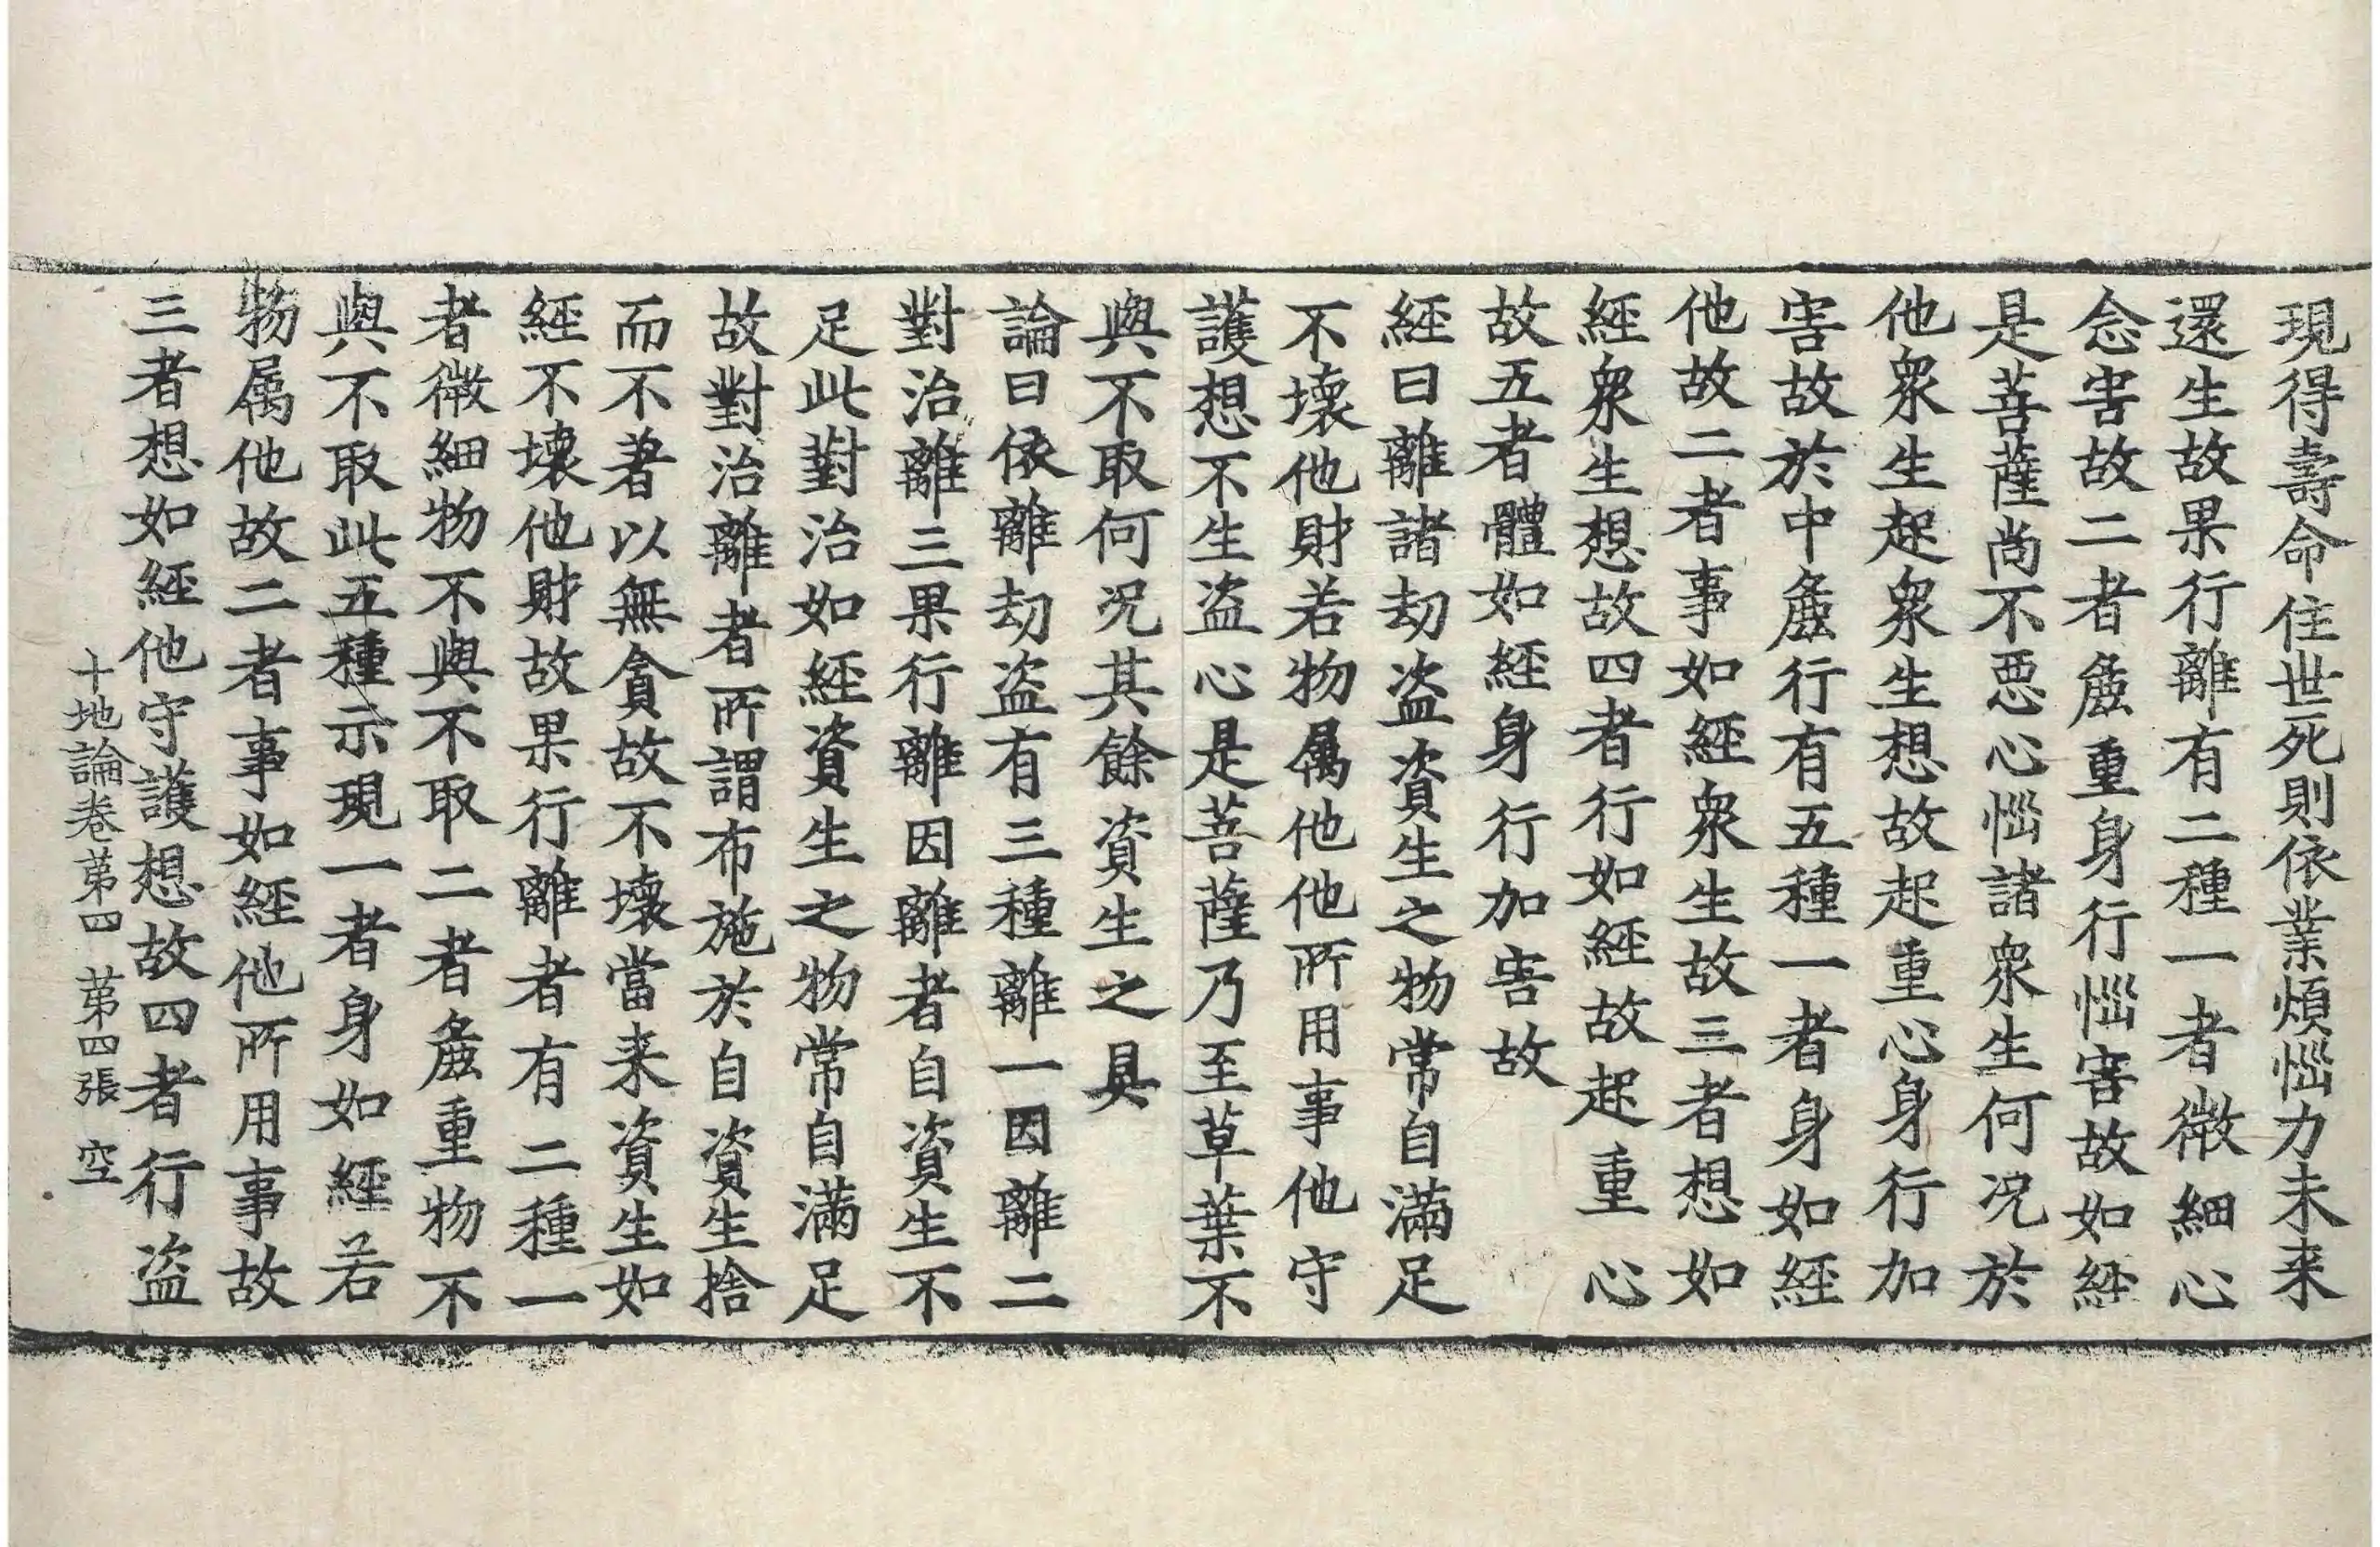 現得壽命住世死則依業煩惱力未来
還生故果行離有二種一者微細心
念害故二者麁重身行惱害故如經
是菩薩尚不惡心惱諸衆生何況於
他衆生起衆生想故起重心身行加
害故於中麁行有五種一者身如經
他故二者事如經衆生故三者想如
經衆生想故四者行如經故起重心
故五者體如經身行加害故
經曰離諸劫盜資生之物常自滿足
不壞他財若物属他他所用事他守
護想不生盜心是菩薩乃至草葉不
與不取何况其餘資生之具
論曰依離劫盜有三種離一因離二
對治離三果行離因離者自資生不
足此對治如經資生之物常自滿足
故對治離者所謂布施於自資生捨
而不著以無貪故不壞當来資生如
經不壞他財故果行離者有二種一
者微細物不與不取二者麁重物不
與不取此五種示現一者身如經若
物属他故二者事如經他所用事故
三者想如經他守護想故四者行盜
十地論卷第四 第四張 空